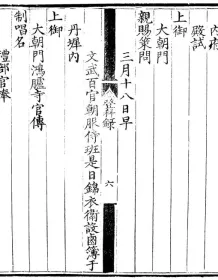 內府
殿試
上御
大朝門
親賜策問
三月十八日早
登科錄
六
文武百官朝服侍班是日錦衣衛設鹵簿于
丹墀內
上御
大朝門鴻臚寺官傳
制唱名
禮部官奉